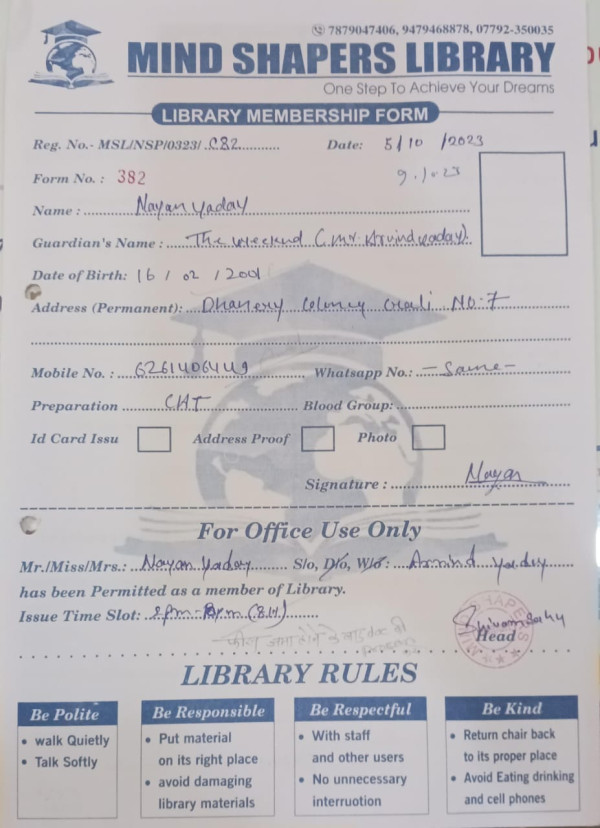 7879047406, 9479468878, 07792-350035
MIND SHAPERS LIBRARY
One Step To Achieve Your Dreams
LIBRARY MEMBERSHIP FORM
Reg. No.- MSL/NSP/0323/ 082 Date: 5/10/2023
Form No. : 382 9.10.23
Name : Nayan yadav
Guardian's Name : The weekend (Mr. Arvind yadav)
Date of Birth: 16 / 02 / 2001
Address (Permanent): Coloney NO. 7
Mobile No. : Whatsapp No.: - Same -
Preparation Blood Group:
Id Card Issu Address Proof Photo
Signature : Nayan
For Office Use Only
Mr./Miss/Mrs.: Nayan yadav S/o, D/o, W/o: Arvind yadav
has been Permitted as a member of Library.
Issue Time Slot: (8.H)
Head
LIBRARY RULES
Be Polite
• walk Quietly
• Talk Softly
Be Responsible
• Put material
on its right place
• avoid damaging
library materials
Be Respectful
• With staff
and other users
• No unnecessary
interruotion
Be Kind
• Return chair back
to its proper place
• Avoid Eating drinking
and cell phones